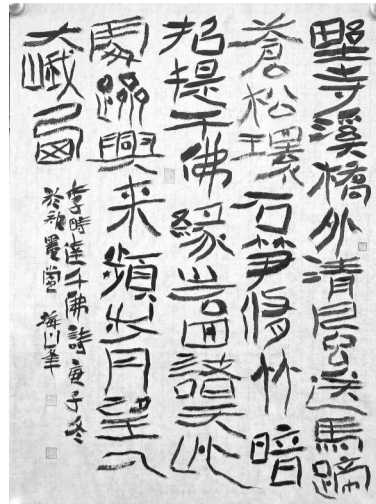 野寺溪橋外清風送馬蹄
蒼松環石笋修竹暗
招提千佛緣岩回諸天此
處興来頻月望入
大峨西
李時達千佛詩庚子冬
於墨堂 梅川筆